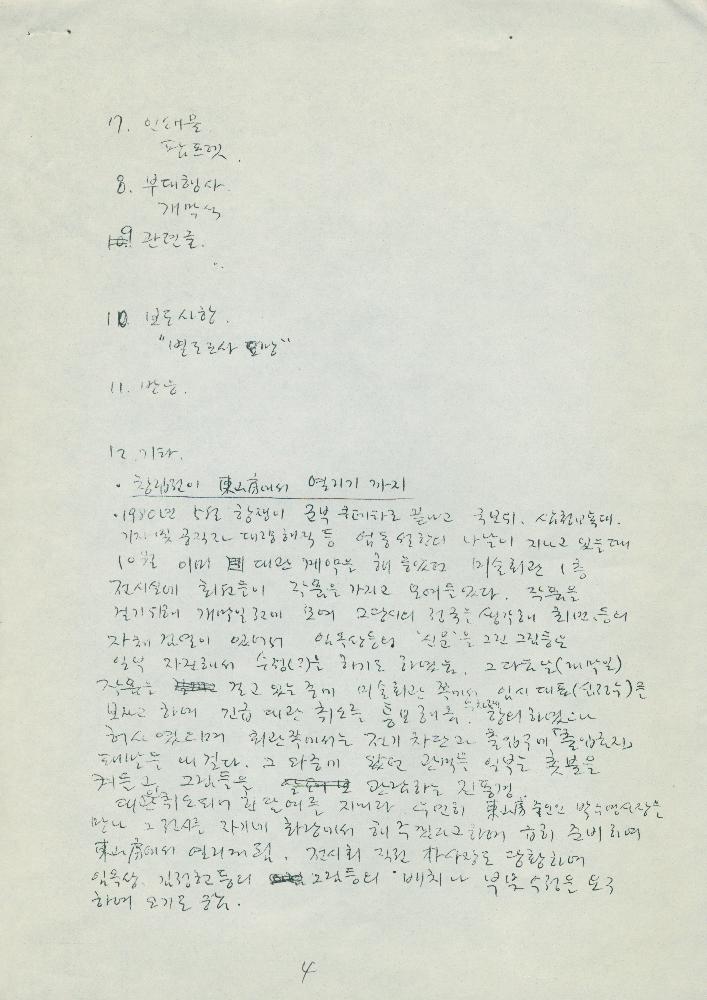 7. 인쇄물
팜프렛.
8. 부대행사.
개막식
9 관련글.
10. 보도사항.
"별로조사 요망"
11. 반응.
12. 기타.
· 창립전이 東山房에서 열리기 까지
· 1980년 5월 항쟁이 군부 쿠데타로 끝나고 국보위, 삼청교육대,
기자 및 공직자 대량해직 등 엄동설한의 나날이 지나고 있을 때
10월 이미 대관 계약을 해 놓았던 미술회관 1층
전시실에 회원들이 작품을 가지고 모여들었다. 작품을
걸기위해 개막일 전에 모여 그당시의 정국을 생각해 회원들의
자체 검열이 있어서 임옥상등의 '신문'을 그린 그림등은
일부 자진해서 수정(?)을 하기도 하였음. 그 다음날(개막일)
작품을 걸고 있는 중에 미술회관 쪽에서 임시대표(손장수)를
보자고 하여 긴급 대관 취소를 통보해옴. 항의하였으나
허사였으며 회관쪽에서는 전기 차단과 출입구에 「출입금지」
패말을 내 걸다. 그 와중에 왔던 관객들 일부는 촛불을
켜들고 그림들을 관람하는 진풍경.
대관취소되어 한달여를 지내다 우연히 東山房 주인인 박주환사장을
만나 그 전시를 자기네 화랑에서 해 주겠다고하여 급히 준비하여
東山房에서 열리게 됨. 전시회 직전 朴사장도 당황하며
임옥상, 김정헌등의 그림등의 배치나 부분 수정을 요구
하여 오기로 하였음.
4